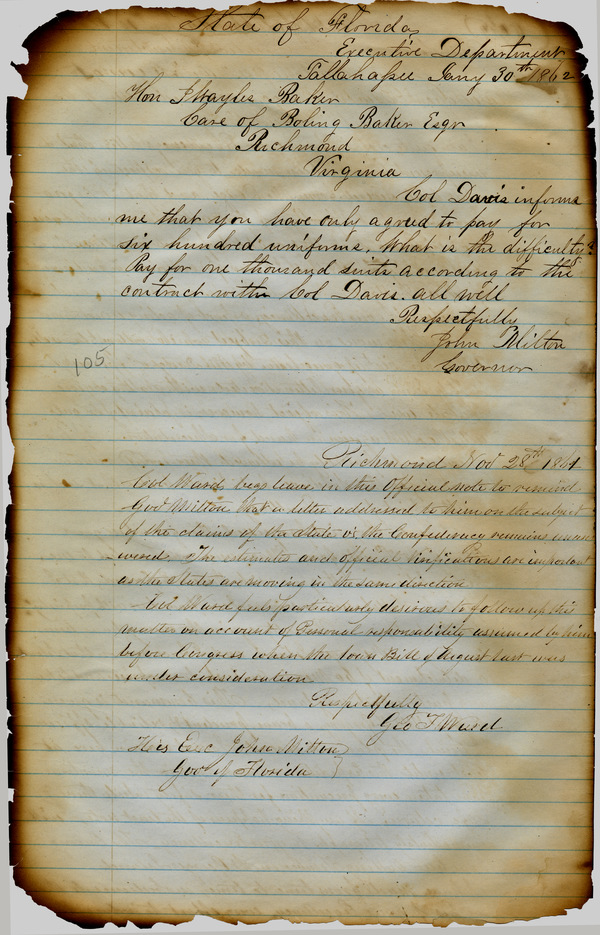 State of Florida
Executive Department
Tallahassee Jany 30th 1862
Hon J Wayles Baker
Care of Boling Baker Esqr
Richmond
Virginia
Col Davis informs
me that you have only agreed to pay for
six hundred uniforms. What is the difficulty?
Pay for one thousand suits according to the
contract with Col Davis. all well
Respectfully
John Milton
Governor
105
Richmond Nov 28th 1861
Col Ward begs leave in this Official note to remind
Gov Milton that a letter addressed to him on the subject
of the claims of the State vs the Confederacy remains unans
wered. The estimates and official are important
as the States are moving in the same direction
Col Ward feels particularly desirous to follow up this
matter on account of Personal responsibility assumed by him
before Congress when the Loan Bill of August last was
under consideration
Respectfully
Geo T Ward
His Exc John Milton
Gov of Florida